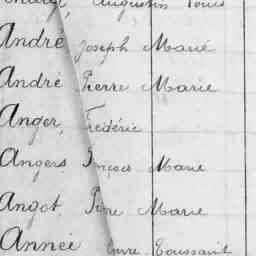 Augustin Louis
André Joseph Marie
André Pierre Marie
Anger, Frédéric
Angers Marie
Angot, Marie
Année Toussaint